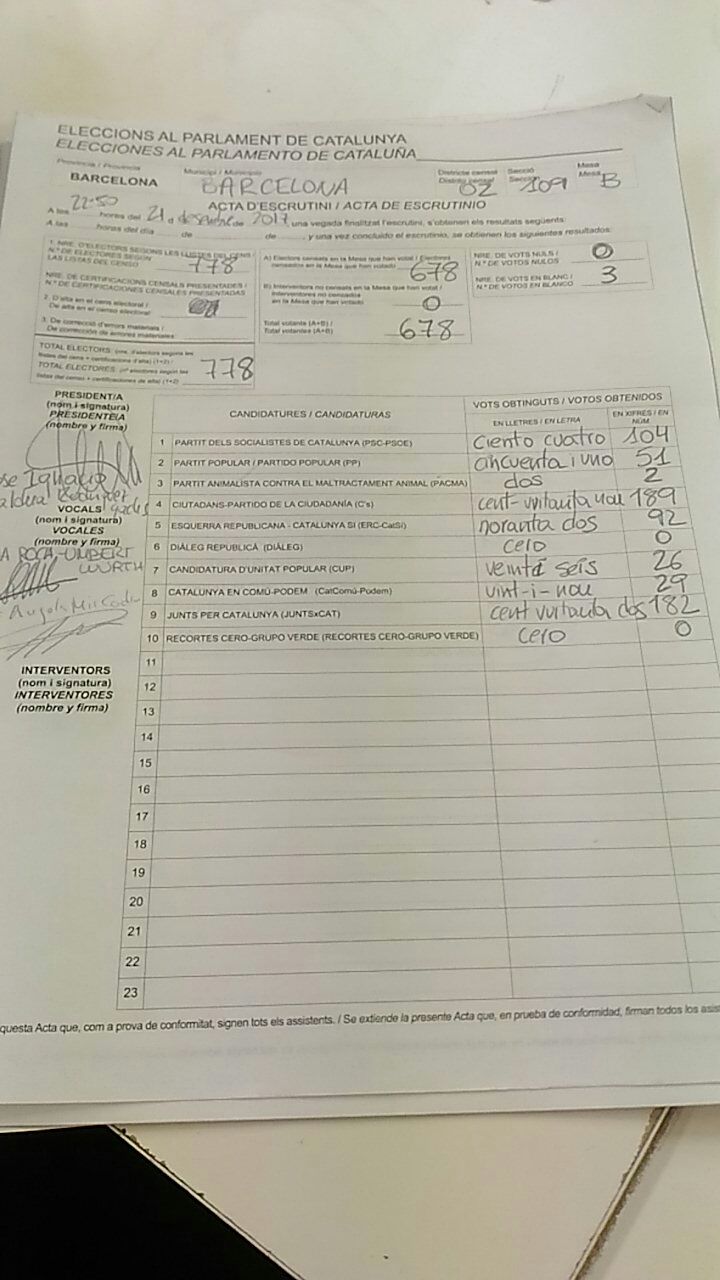 ELECCIONS AL PARLAMENT DE CATALUNYA
ELECCIONES AL PARLAMENTO DE CATALUÑA
Província / Provincia
Municipi / Municipio
Districte censal
Distrito censal
Secció
Sección
Mesa
Mesa
BARCELONA
BARCELONA
02
109
B
ACTA D'ESCRUTINI / ACTA DE ESCRUTINIO
A les 22:50 hores del 21 d desembre de 2017, una vegada finalitzat l'escrutini, s'obtenen els resultats següents:
A las hores del día de de y una vez concluido el escrutinio, se obtienen los siguientes resultados:
1. NRE. D'ELECTORS SEGONS LES LLISTES DEL CENS /
N.º DE ELECTORES SEGÚN
LAS LISTAS DEL CENSO
778
NRE. DE CERTIFICACIONS CENSALS PRESENTADES /
N.º DE CERTIFICACIONES CENSALES PRESENTADAS
2. D'alta en el cens electoral /
De alta en el censo electoral
3. De correcció d'errors materials /
De corrección de errores materiales
TOTAL ELECTORS: (nre. d'electors segons les
llistes del cens + certificacions d'alta) (1+2) /
TOTAL ELECTORES: (nº electores según las
listas del censo + certificaciones de alta) (1+2)
778
A) Electors censats en la Mesa que han votat / Electores
censados en la Mesa que han votado
678
B) Interventors no censats en la Mesa que han votat /
Interventores no censados
en la Mesa que han votado
0
Total votants (A+B) /
Total votantes (A+B)
678
NRE. DE VOTS NULS /
N.º DE VOTOS NULOS
0
NRE. DE VOTS EN BLANC /
N.º DE VOTOS EN BLANCO
3
PRESIDENT/A
(nom i signatura)
PRESIDENTE/A
(nombre y firma)
se Ignacio
VOCALS
(nom i signatura)
VOCALES
(nombre y firma)
A ROCA-UMBERT
WÜRTH
INTERVENTORS
(nom i signatura)
INTERVENTORES
(nombre y firma)
CANDIDATURES / CANDIDATURAS
VOTS OBTINGUTS / VOTOS OBTENIDOS
EN LLETRES / EN LETRA
EN XIFRES / EN NÚM.
1 PARTIT DELS SOCIALISTES DE CATALUNYA (PSC-PSOE) ciento cuatro 104
2 PARTIT POPULAR / PARTIDO POPULAR (PP) cincuenta i uno 51
3 PARTIT ANIMALISTA CONTRA EL MALTRACTAMENT ANIMAL (PACMA) dos 2
4 CIUTADANS-PARTIDO DE LA CIUDADANÍA (C's) cent-vuitanta nou 189
5 ESQUERRA REPUBLICANA - CATALUNYA SÍ (ERC-CatSí) noranta dos 92
6 DIÀLEG REPUBLICÀ (DIÀLEG) cero 0
7 CANDIDATURA D'UNITAT POPULAR (CUP) veinti seis 26
8 CATALUNYA EN COMÚ-PODEM (CatComú-Podem) vint-i-nou 29
9 JUNTS PER CATALUNYA (JUNTSxCAT) cent vuitanta dos 182
10 RECORTES CERO-GRUPO VERDE (RECORTES CERO-GRUPO VERDE) cero 0
11
12
13
14
15
16
17
18
19
20
21
22
23
questa Acta que, com a prova de conformitat, signen tots els assistents. / Se extiende la presente Acta que, en prueba de conformidad, firman todos los asis